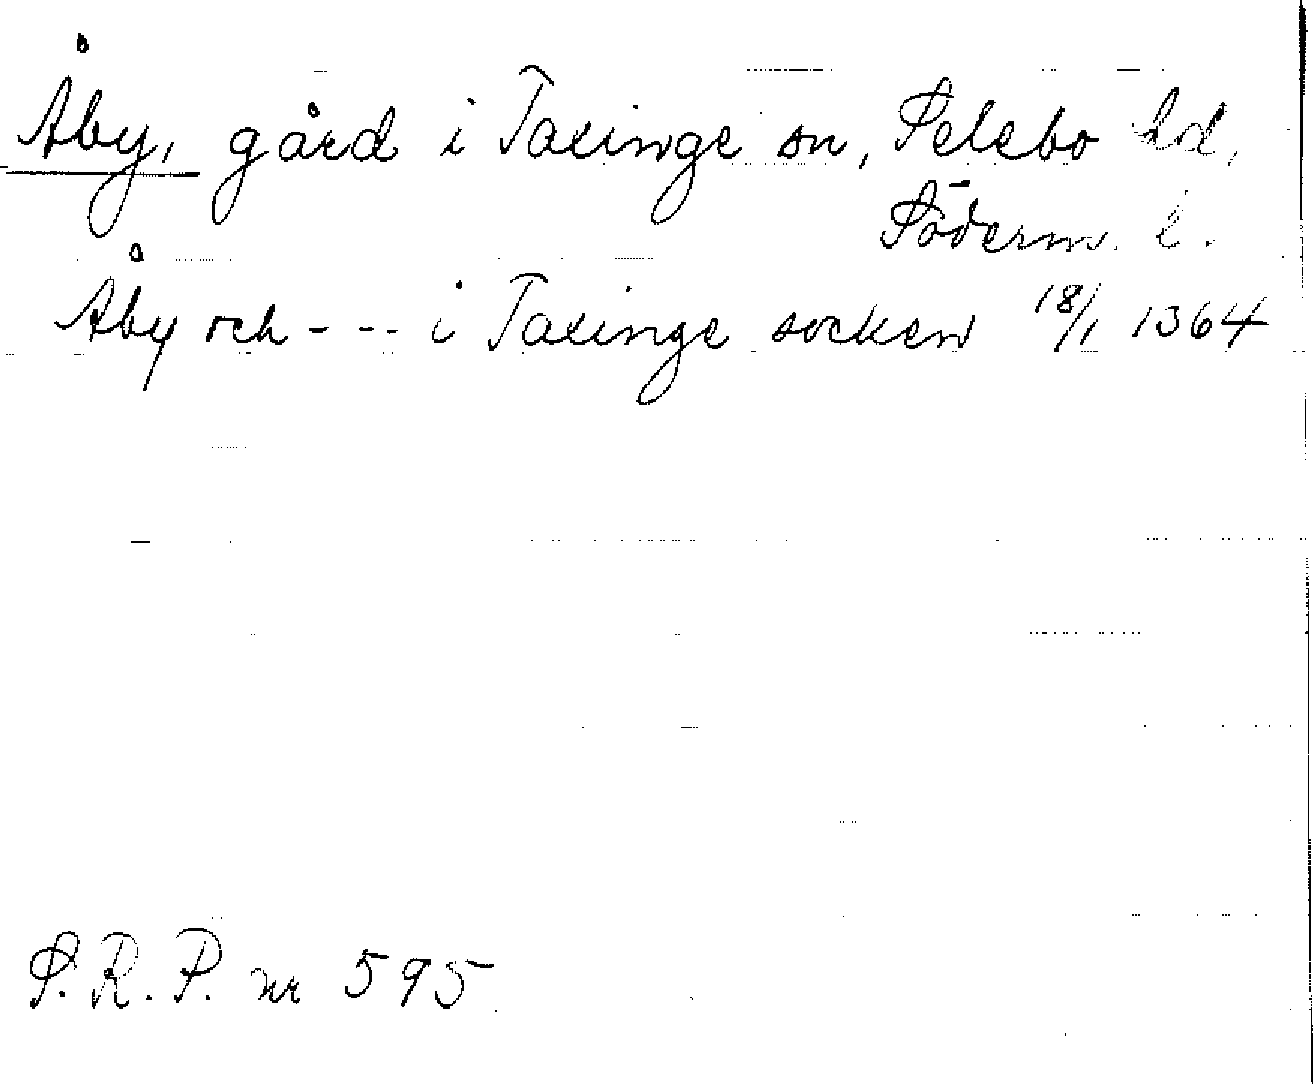 Åby, gård i Taxinge sn, Selebo hd,
Söderm. l.
Åby och - - - i Taxinge socken 18/1 1364
S.R.P. nr 595